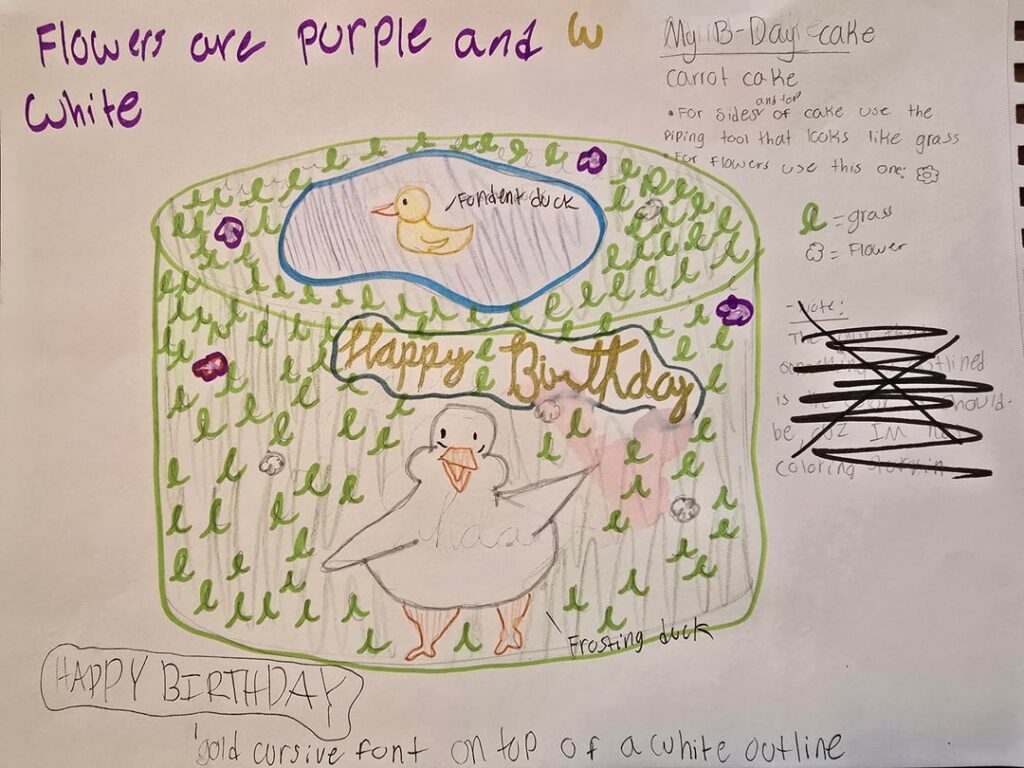 Flowers are purple and w
white
My B-Day cake
carrot cake
and top
• For sides of cake use the
piping tool that looks like grass
• For flowers use this one:
= grass
= Flower
Fondent duck
Happy Birthday
- Note:
The
something outlined
is the color should
be, cuz IM not
coloring
Frosting duck
HAPPY BIRTHDAY
gold cursive font on top of a white outline